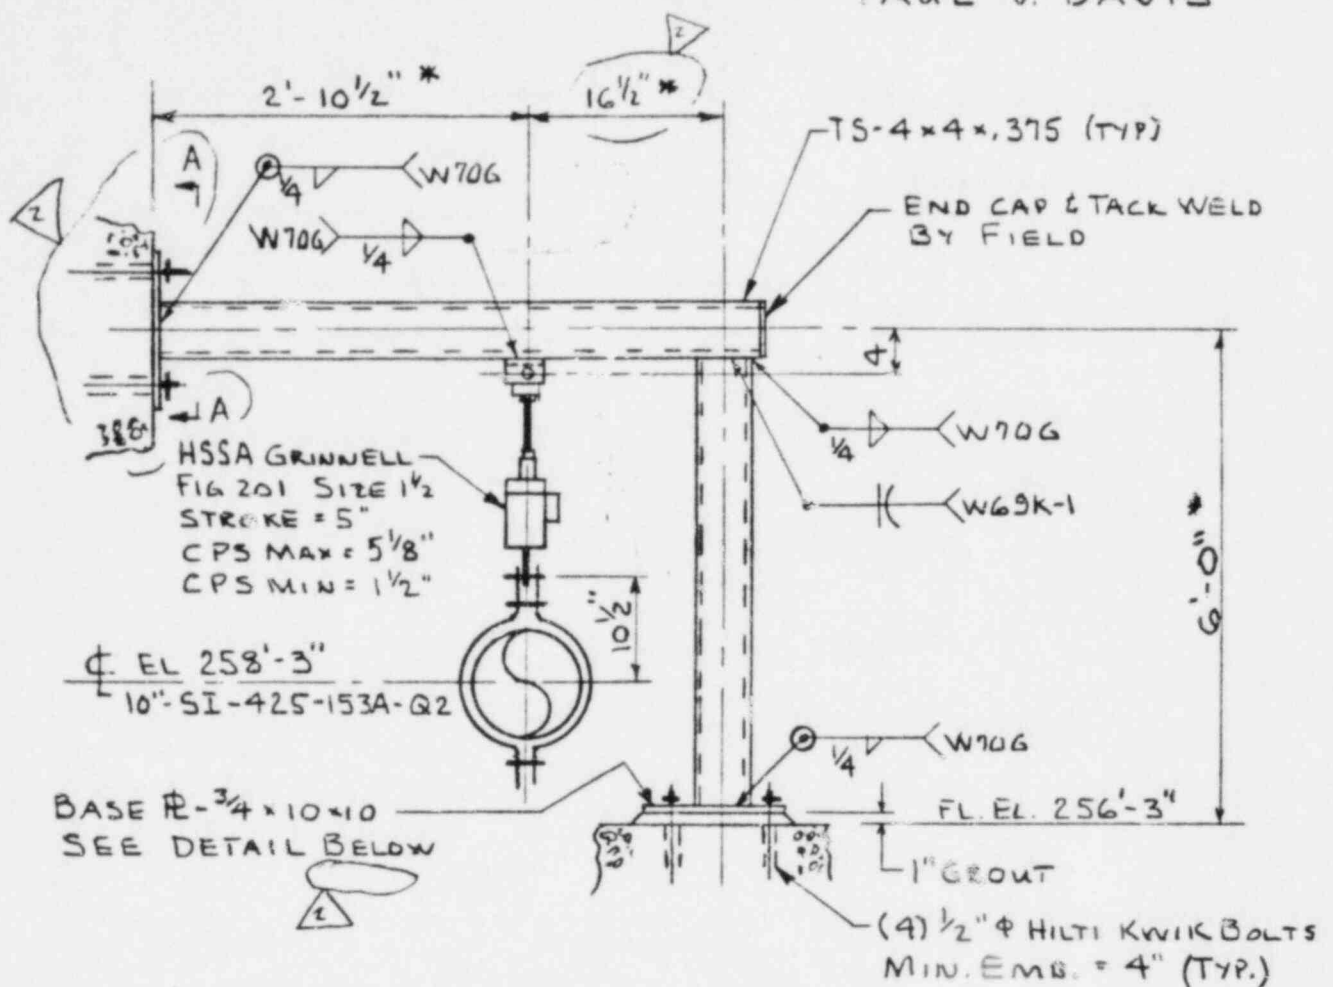 PAUL J. DAVIS
2
2'-10 1/2" *
16 1/2" *
TS-4x4x.375 (TYP)
2
A
1/4
W70G
END CAP & TACK WELD
BY FIELD
W70G
1/4
4
A
1/4
W70G
HSSA GRINNELL
FIG 201 SIZE 1 1/2
STROKE = 5"
CPS MAX = 5 1/8"
CPS MIN = 1 1/2"
W69K-1
6'-0" *
10 1/2"
℄ EL 258'-3"
10"-SI-425-153A-Q2
1/4
W70G
BASE PL-3/4 x 10x10
SEE DETAIL BELOW
FL. EL. 256'-3"
2
1" GROUT
(4) 1/2" Φ HILTI KWIK BOLTS
MIN. EMB. = 4" (TYP.)